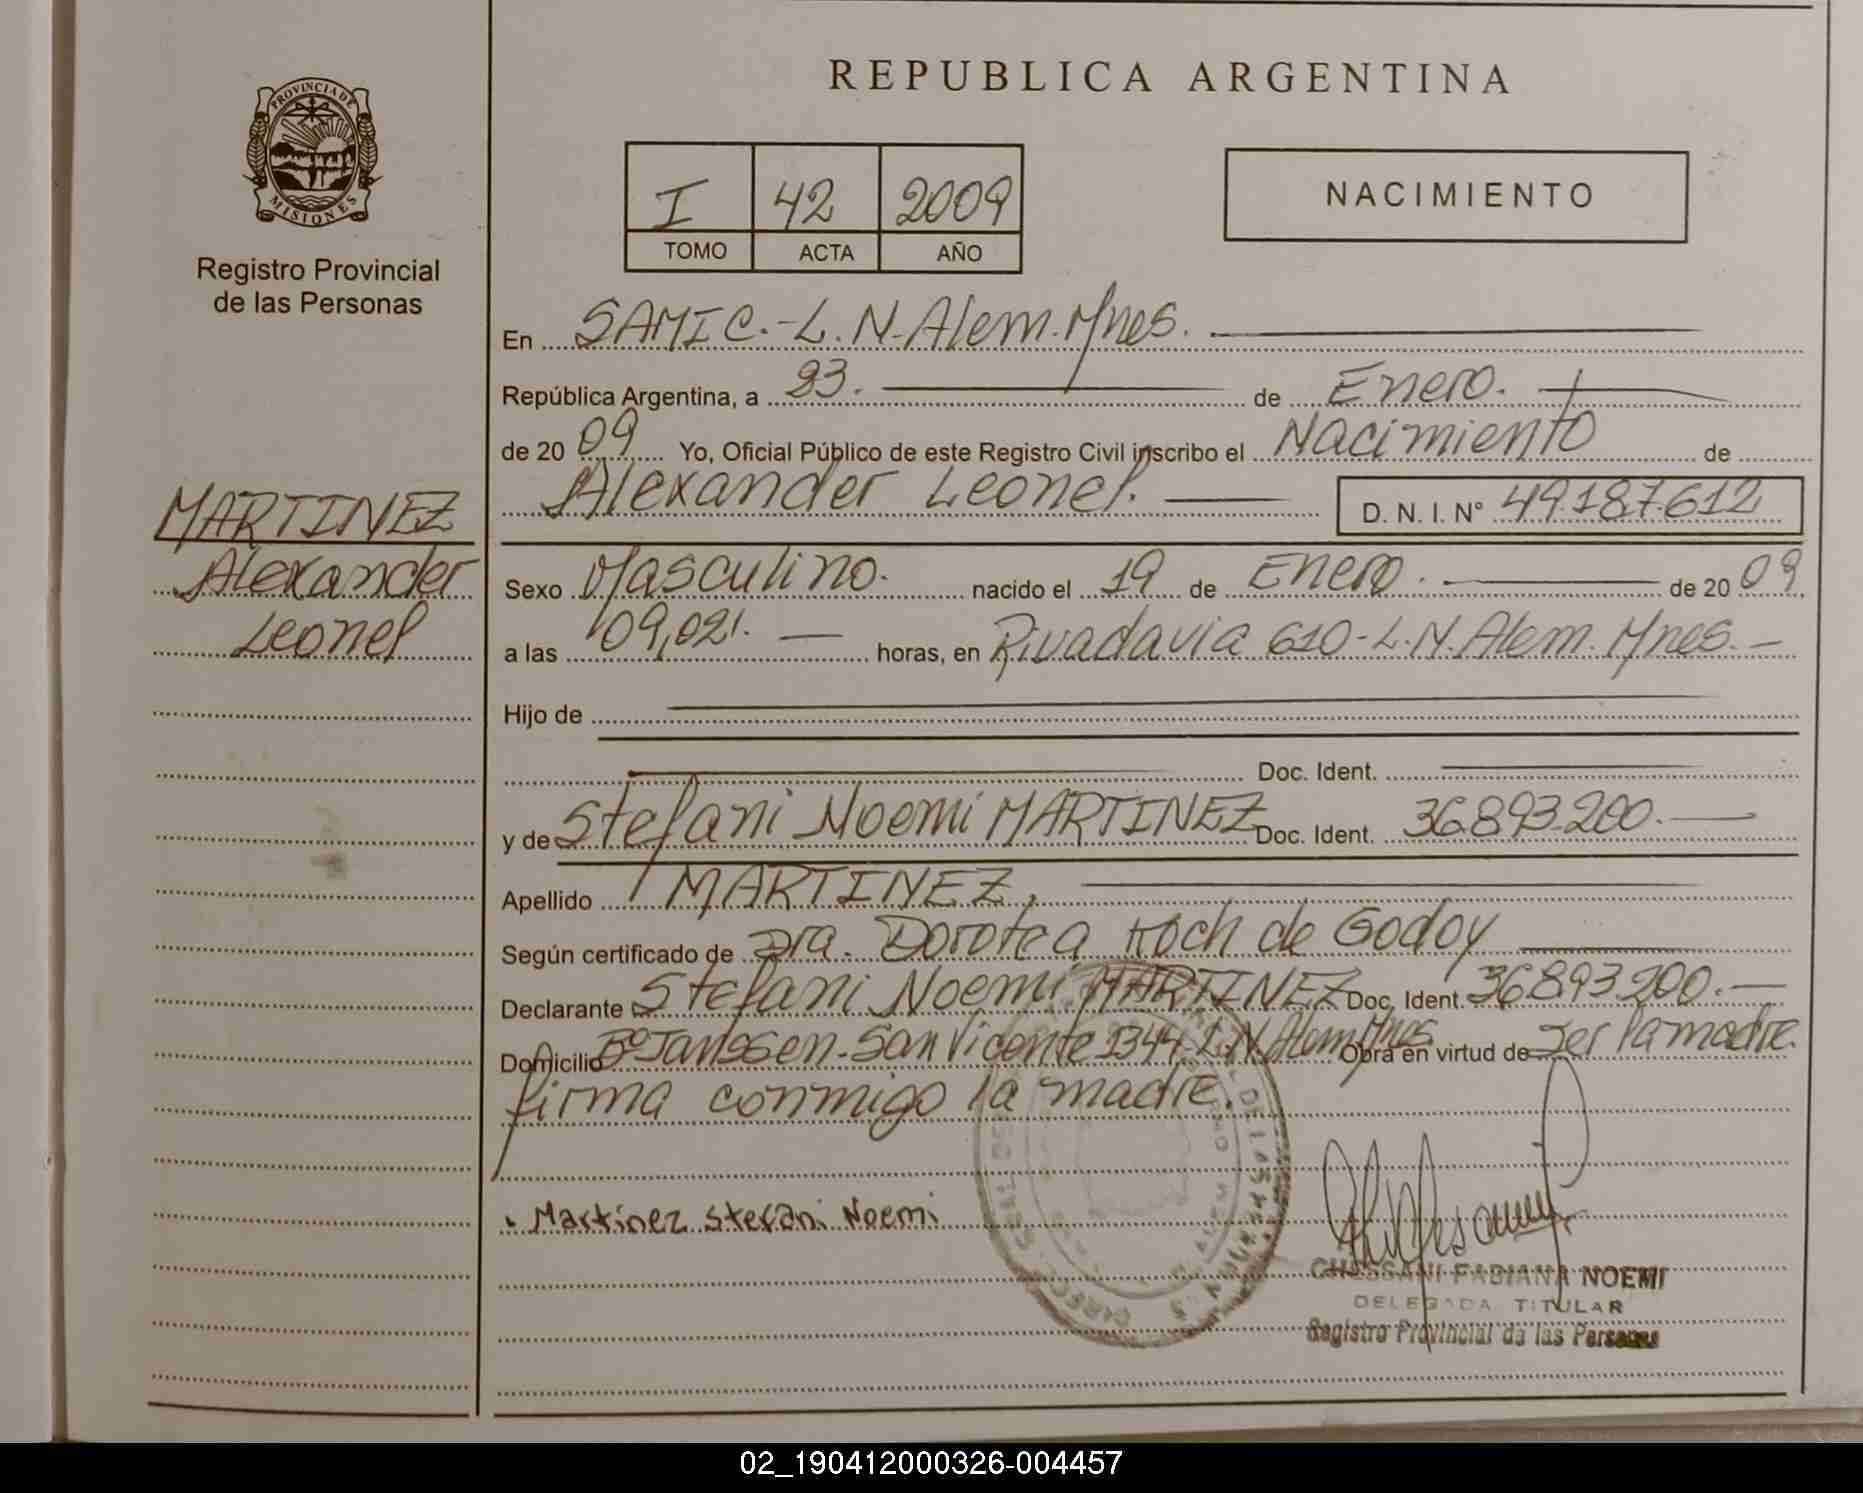 REPUBLICA ARGENTINA
PROVINCIA DE
MISIONES
Registro Provincial
de las Personas
I 42 2009
TOMO ACTA AÑO
NACIMIENTO
En SAMIC.-L.N-Alem.Mnes.
República Argentina, a 23. de Enero.
de 2009 Yo, Oficial Público de este Registro Civil inscribo el Nacimiento de
Alexander Leonel. D. N. I. N° 49.187.612
MARTINEZ
Alexander
Leonel
Sexo Masculino. nacido el 19 de Enero. de 2009
a las 09,02'. horas, en Rivadavia 610-L.N.Alem.Mnes.-
Hijo de
Doc. Ident.
y de Stefani Noemi MARTINEZ Doc. Ident. 36.893.200.
Apellido MARTINEZ.
Según certificado de Dra. Dorotea Koch de Godoy
Declarante Stefani Noemi MARTINEZ Doc. Ident. 36.893.200.-
Domicilio B° Janssen-San Vicente 1344 L.N.Alem.Mnes. Obra en virtud de ser la madre.
firma conmigo la madre.
Martinez Stefani Noemi
FABIANA NOEMI
DELEGADA TITULAR
Registro Provincial de las Personas
02_190412000326-004457